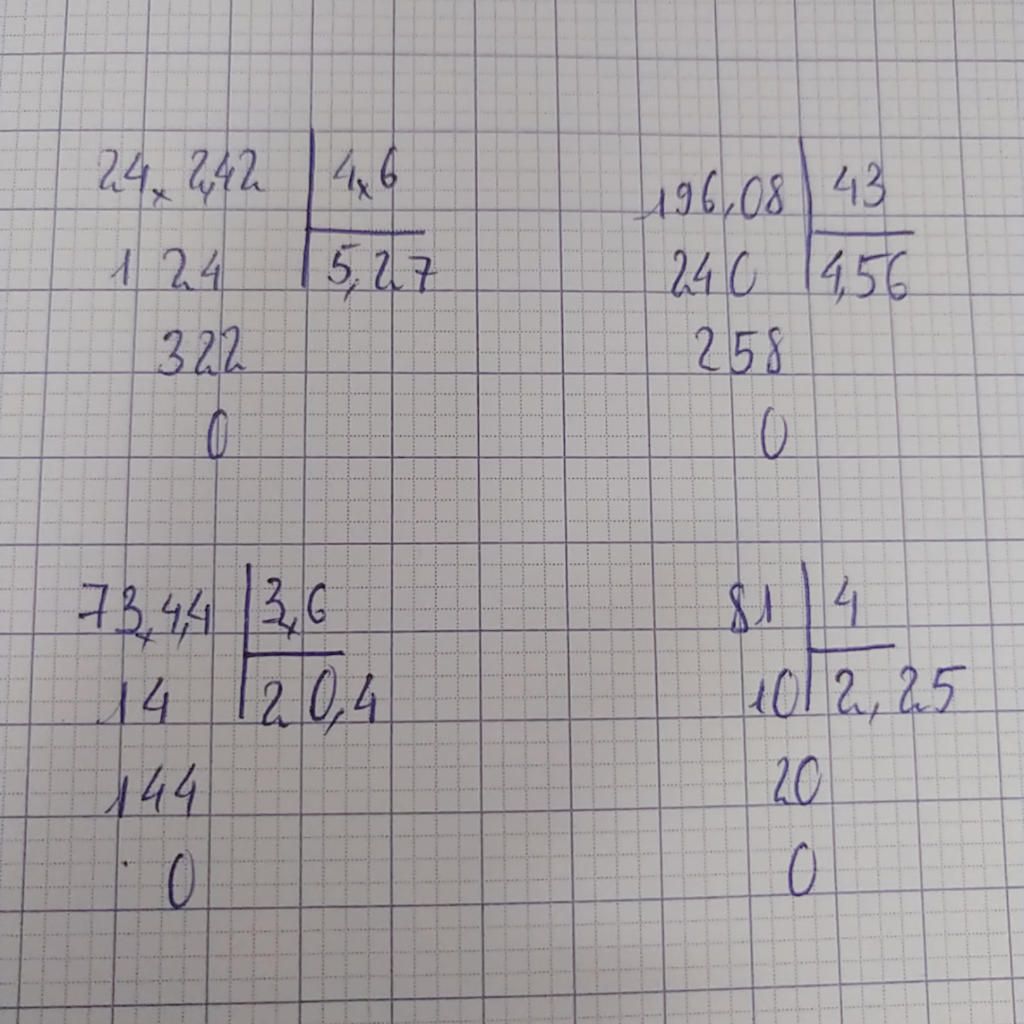 24ₓ2,42 | 4ₓ6
124 | 5,27
322
0
196,08 | 43
240 | 4,56
258
0
73ₓ4,4 | 3ₓ6
14 | 20,4
144
0
81 | 4
10 | 2,25
20
0